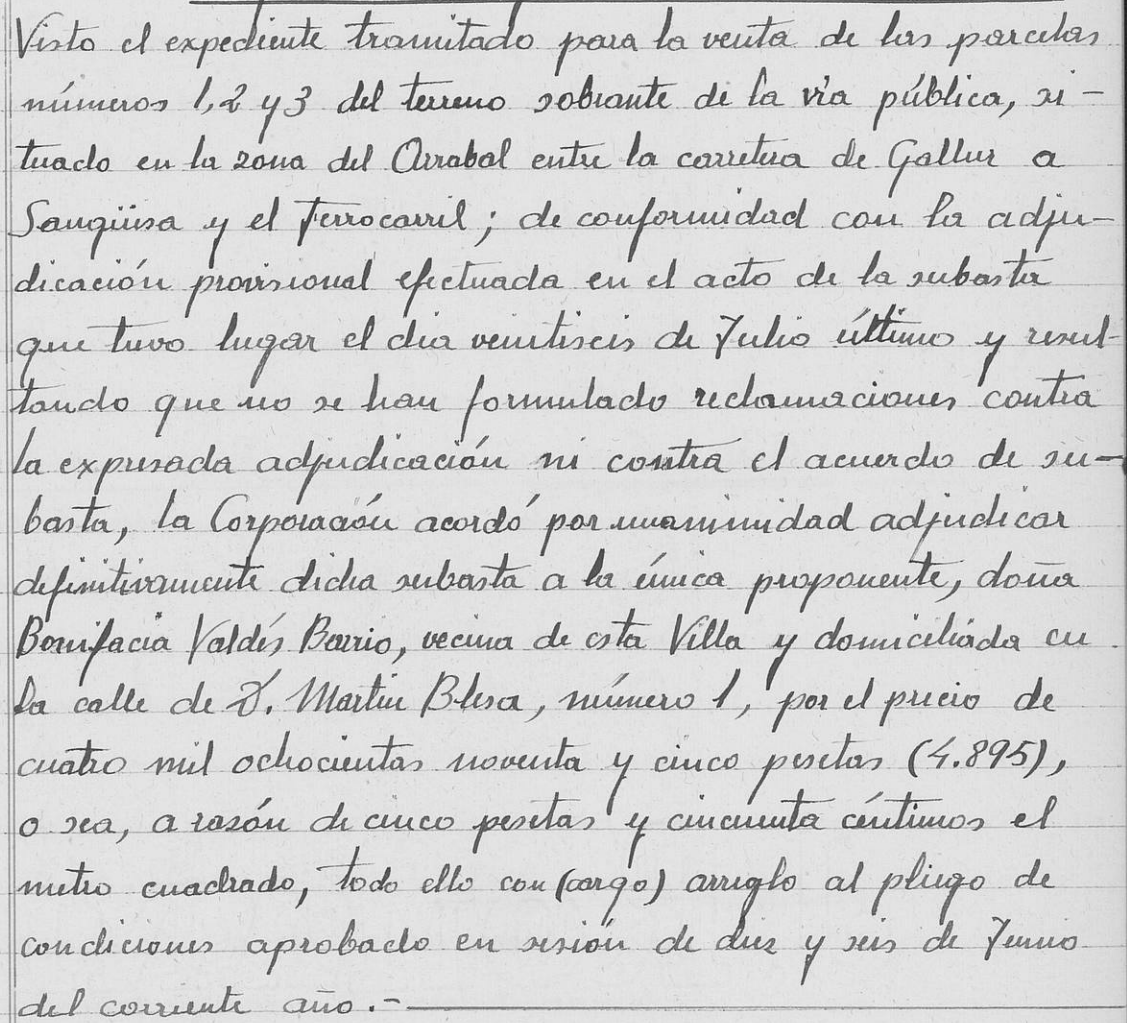 Visto el expediente tramitado para la venta de las parcelas
números 1, 2 y 3 del terreno sobrante de la vía pública, si-
tuado en la zona del Arrabal entre la carretera de Gallur a
Sangüesa y el Ferrocarril; de conformidad con la adju-
dicación provisional efectuada en el acto de la subasta
que tuvo lugar el día veintiseis de Julio último y resul-
tando que no se han formulado reclamaciones contra
la expresada adjudicación ni contra el acuerdo de su-
basta, la Corporación acordó por unanimidad adjudicar
definitivamente dicha subasta a la única proponente, doña
Bonifacia Valdés Barrio, vecina de esta Villa y domiciliada en
la calle de D. Martin Blesa, número 1, por el precio de
cuatro mil ochocientas noventa y cinco pesetas (4.895),
o sea, a razón de cinco pesetas y cincuenta céntimos el
metro cuadrado, todo ello con (cargo) arreglo al pliego de
condiciones aprobado en sesión de diez y seis de Junio
del corriente año.-